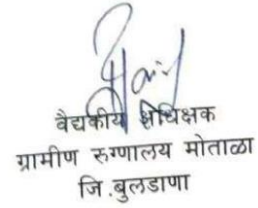 वैद्यकीय अधिक्षक
ग्रामीण रुग्णालय मोताळा
जि.बुलडाणा